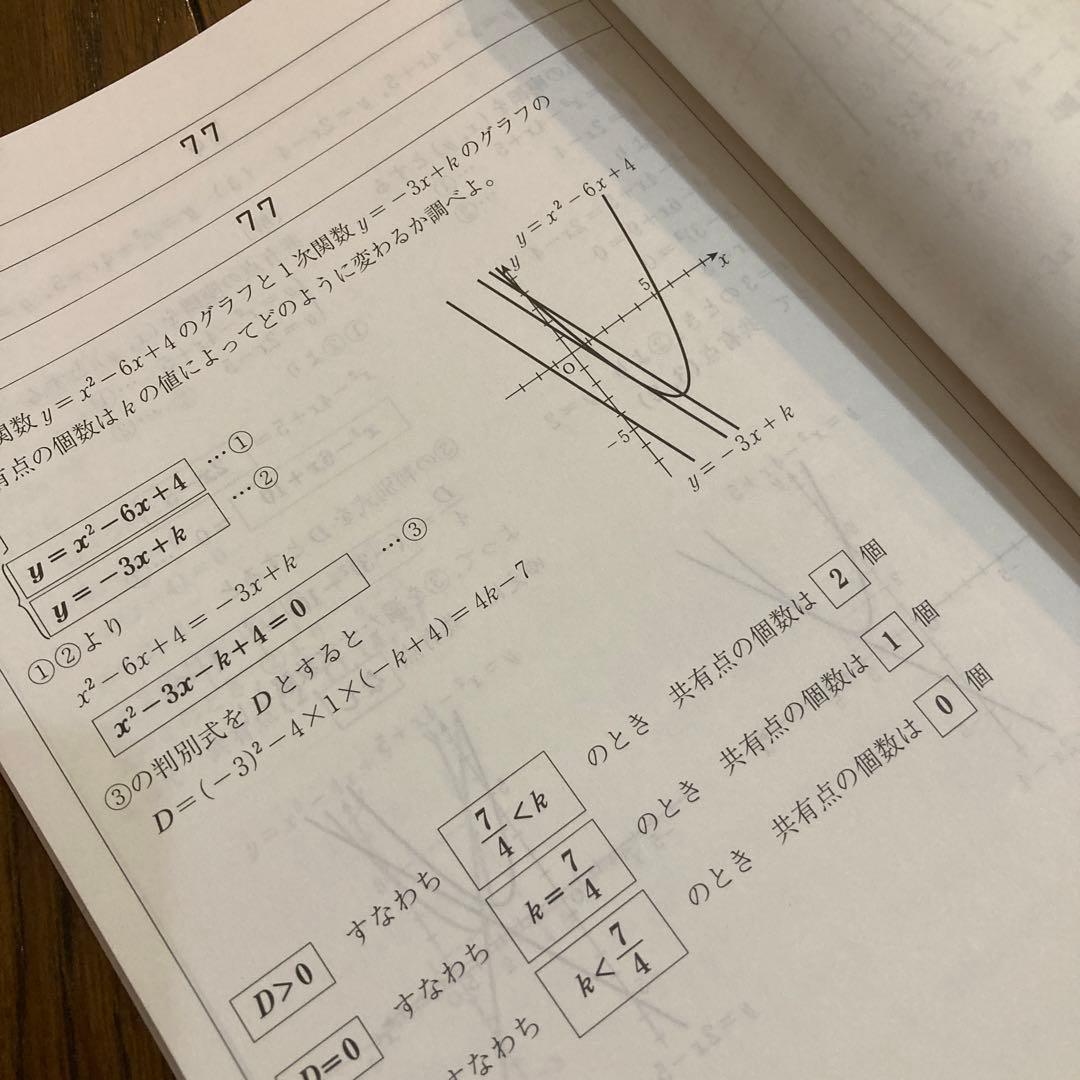 77
77
関数 y = x² − 6x + 4 のグラフと 1 次関数 y = − 3x + k のグラフの
有点の個数は k の値によってどのように変わるか調べよ。
y = x² − 6x + 4
y
x
5
O
−5
y = − 3x + k
y = x² − 6x + 4 …①
y = − 3x + k …②
①②より
x² − 6x + 4 = − 3x + k
x² − 3x − k + 4 = 0 …③
③の判別式を D とすると
D = (− 3)² − 4 × 1 × (− k + 4) = 4k − 7
D > 0 すなわち 7/4 < k のとき 共有点の個数は 2 個
D = 0 すなわち k = 7/4 のとき 共有点の個数は 1 個
すなわち k < 7/4 のとき 共有点の個数は 0 個